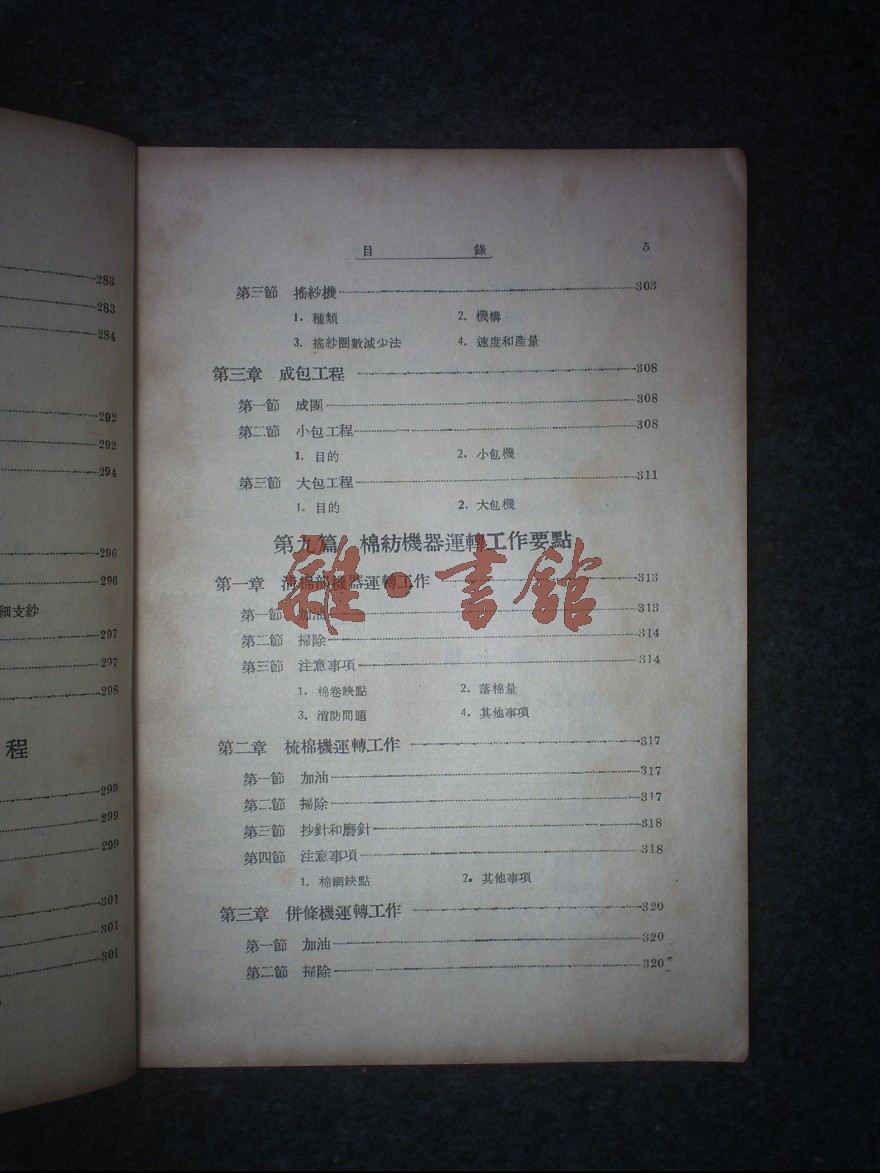 283
283
284
292
292
294
296
296
細支紗
297
297
298
程
299
299
299
301
301
301
目 錄 5
第三節 搖紗機 303
1. 種類 2. 機構
3. 搖紗圈數減少法 4. 速度和產量
第三章 成包工程 308
第一節 成團 308
第二節 小包工程 308
1. 目的 2. 小包機
第三節 大包工程 311
1. 目的 2. 大包機
第九篇 棉紡機器運轉工作要點
第一章 清棉部機器運轉工作 313
第一節 加油 313
第二節 掃除 314
第三節 注意事項 314
1. 棉卷缺點 2. 落棉量
3. 消防問題 4. 其他事項
第二章 梳棉機運轉工作 317
第一節 加油 317
第二節 掃除 317
第三節 抄針和磨針 318
第四節 注意事項 318
1. 棉網缺點 2. 其他事項
第三章 併條機運轉工作 320
第一節 加油 320
第二節 掃除 320
雜·書館